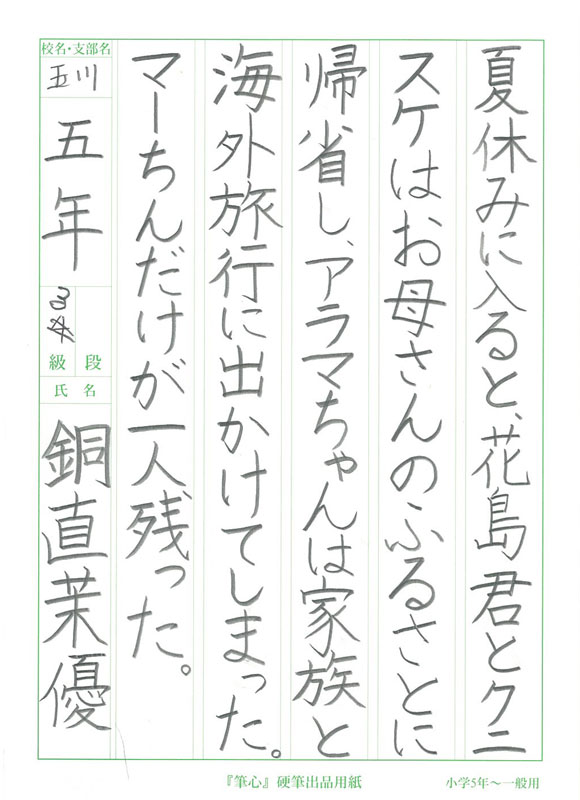 夏休みに入ると、花島君とクニ
スケはお母さんのふるさとに
帰省し、アラマちゃんは家族と
海外旅行に出かけてしまった。
マーちんだけが一人残った。
校名・支部名
玉川
五年
級 段
氏名
銅直茉優
『筆心』硬筆出品用紙
小学5年〜一般用